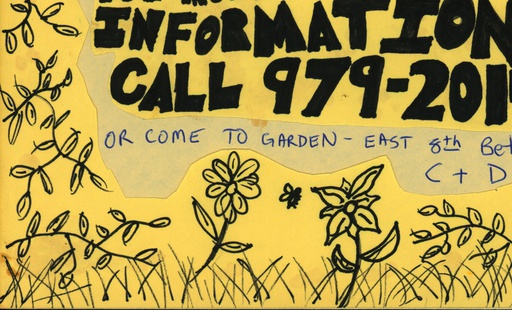 INFORMATION
CALL 979-201
OR COME TO GARDEN - EAST 8th Bet
C + D